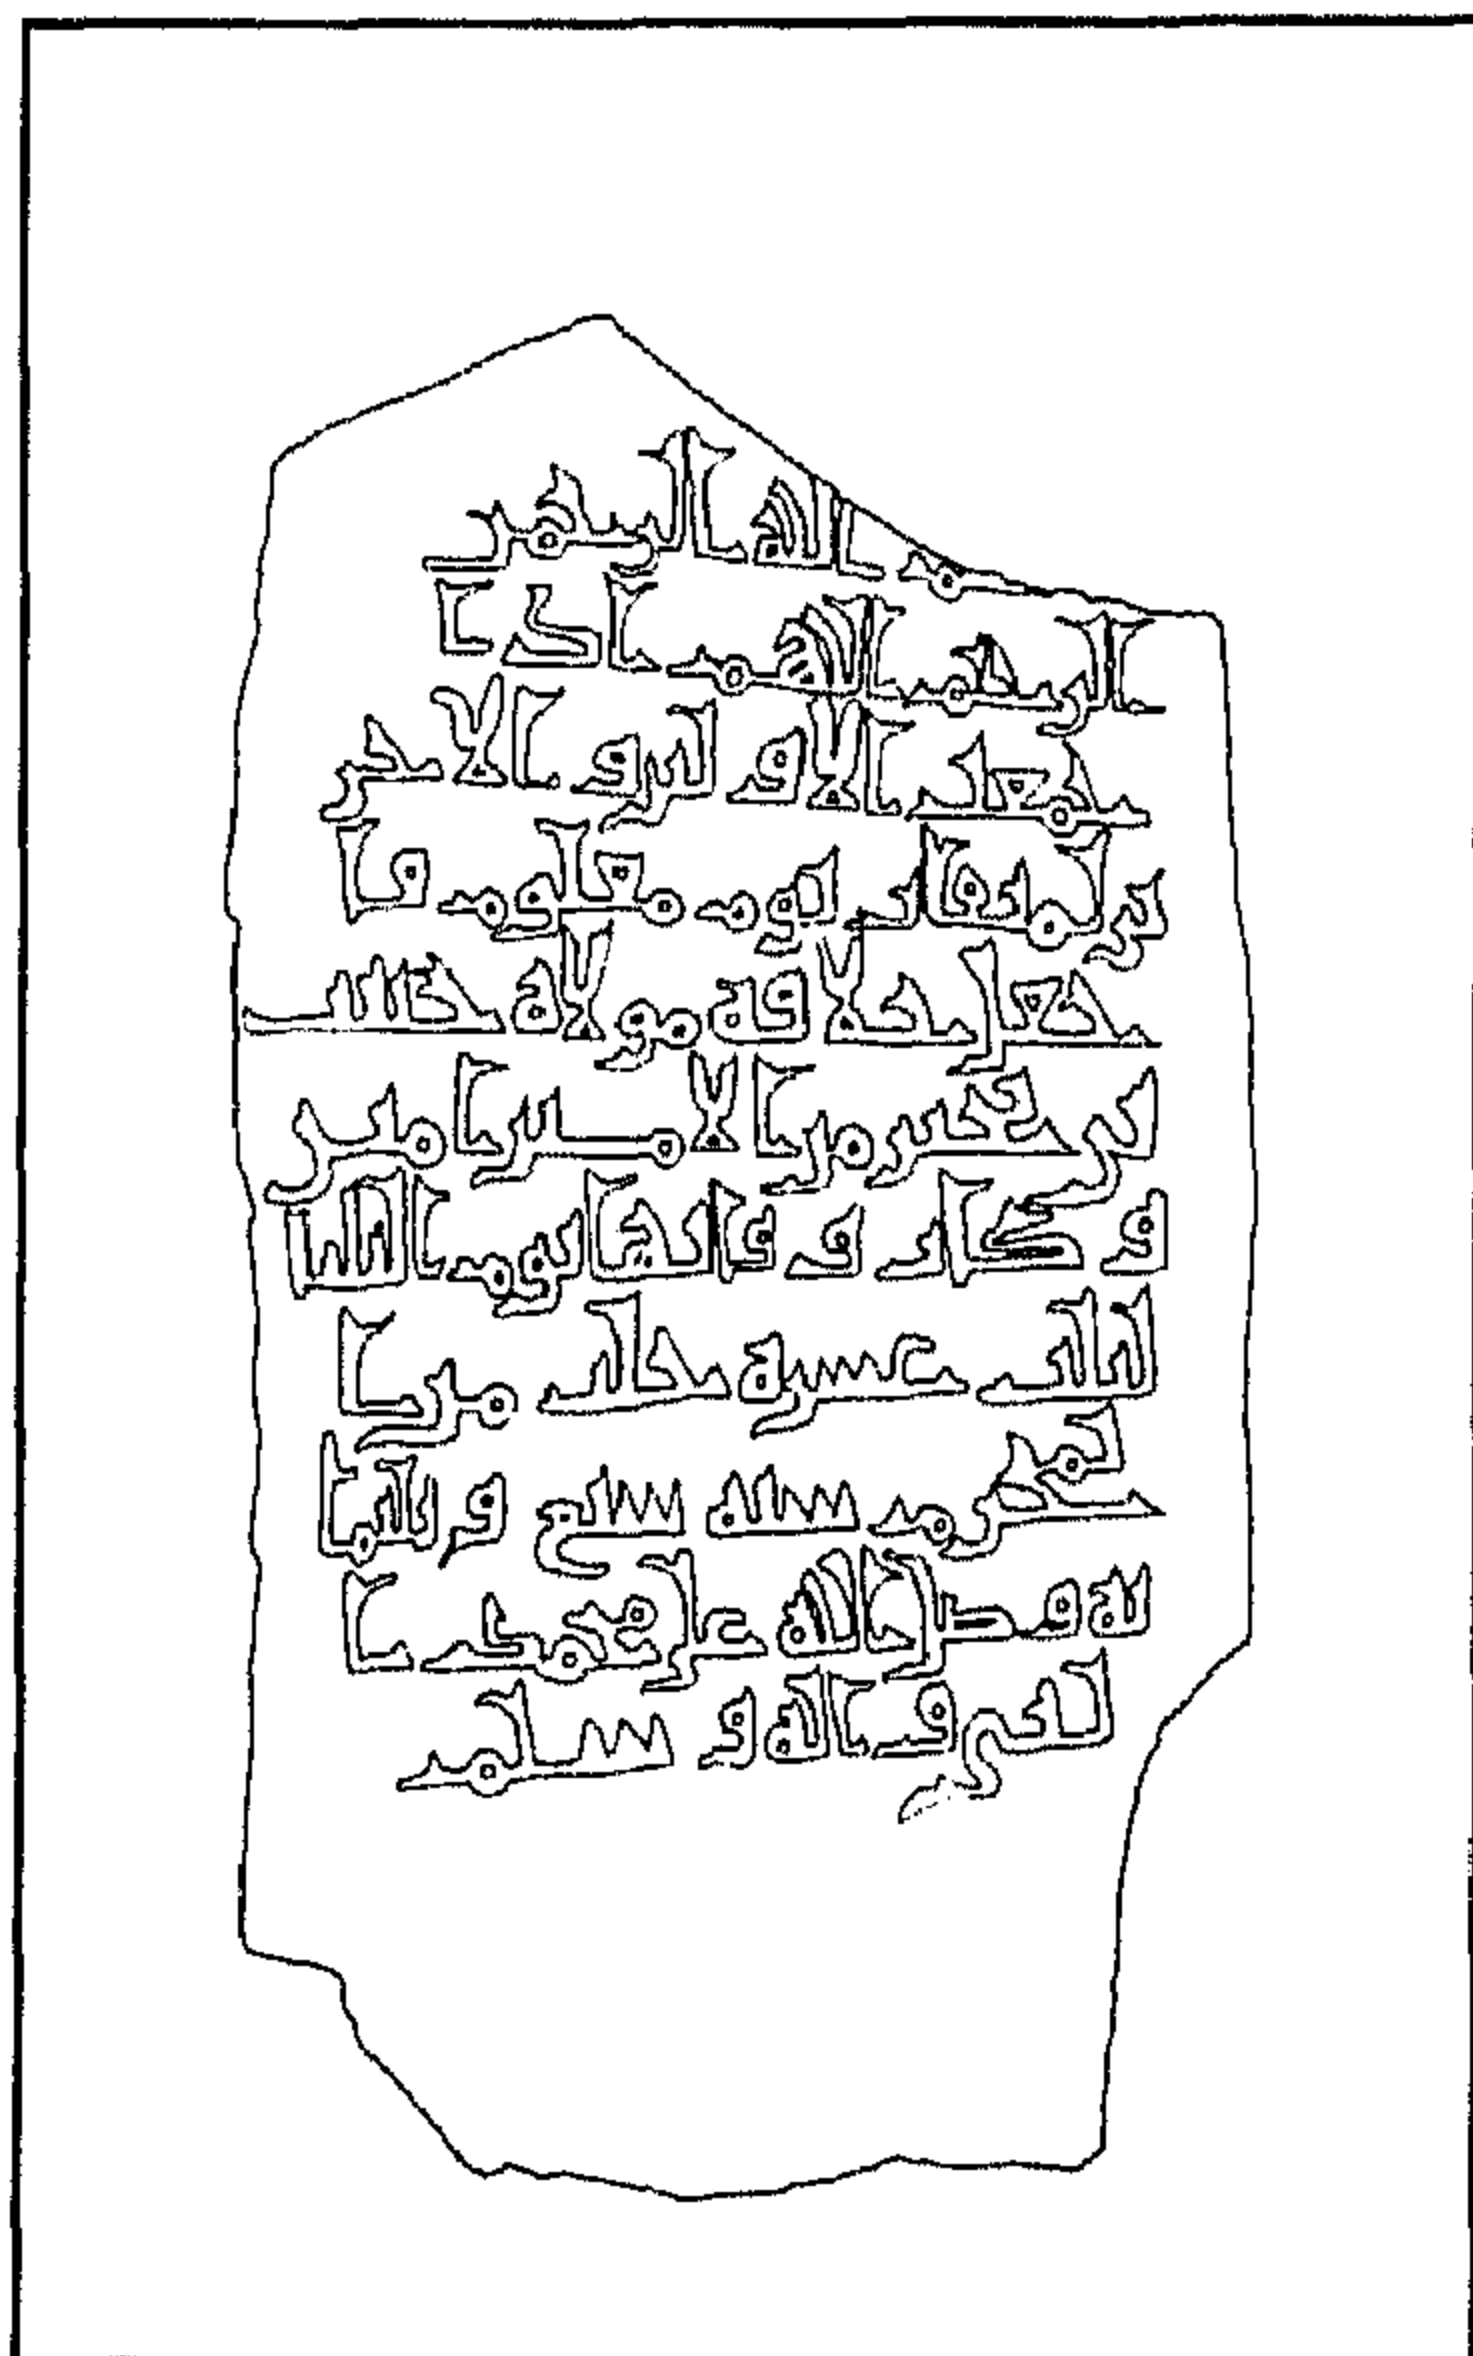 بسم الله الرحمن
الرحيم اللهم اذا
جمعت الاولين والاخر
ين لميقات يوم معلوم فا
جعل خلافة مولاة
من الامنين امين
وكانت وفاتها يوم الثلثا
لثلث عشرة خلت من ا
لمحرم سنة سبع وثلثما
ئة وصلى الله على محمد ا
لنبي واله وسلم